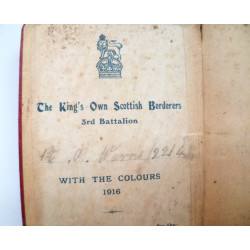 The King's Own Scottish Borderers
3rd Battalion
WITH THE COLOURS
1916